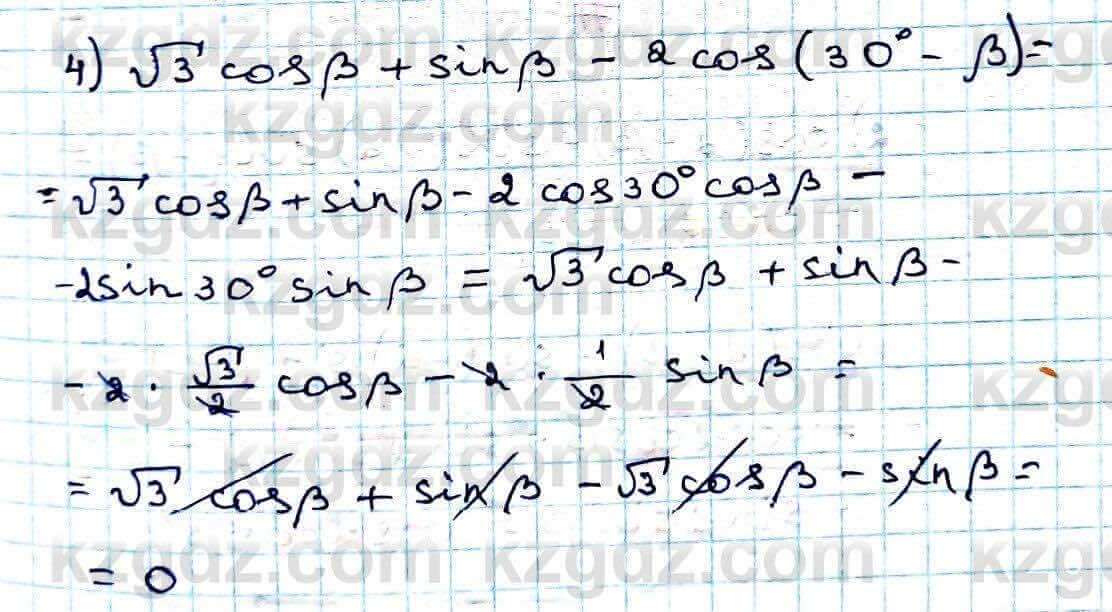 4) √3 cosβ + sinβ - 2 cos(30° - β) =
= √3 cosβ + sinβ - 2 cos30° cosβ -
- 2sin30° sinβ = √3 cosβ + sinβ -
- 2 · √3/2 cosβ - 2 · 1/2 sinβ =
= √3 cosβ + sinβ - √3 cosβ - sinβ =
= 0
kzgdz.com